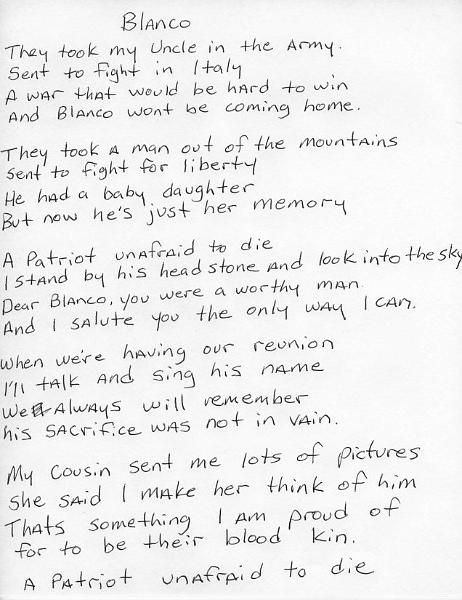 Blanco
They took my Uncle in the Army.
Sent to fight in Italy
A war that would be hard to win
And Blanco wont be coming home.
They took a man out of the mountains
Sent to fight for liberty
He had a baby daughter
But now he's just her memory
A Patriot unafraid to die
I stand by his head stone and look into the sky
Dear Blanco, you were a worthy man
And I salute you the only way I can.
When we're having our reunion
I'll talk and sing his name
We Always will remember
his sacrifice was not in vain.
My Cousin sent me lots of pictures
She said I make her think of him
Thats something I am proud of
for to be their blood kin.
A Patriot unafraid to die